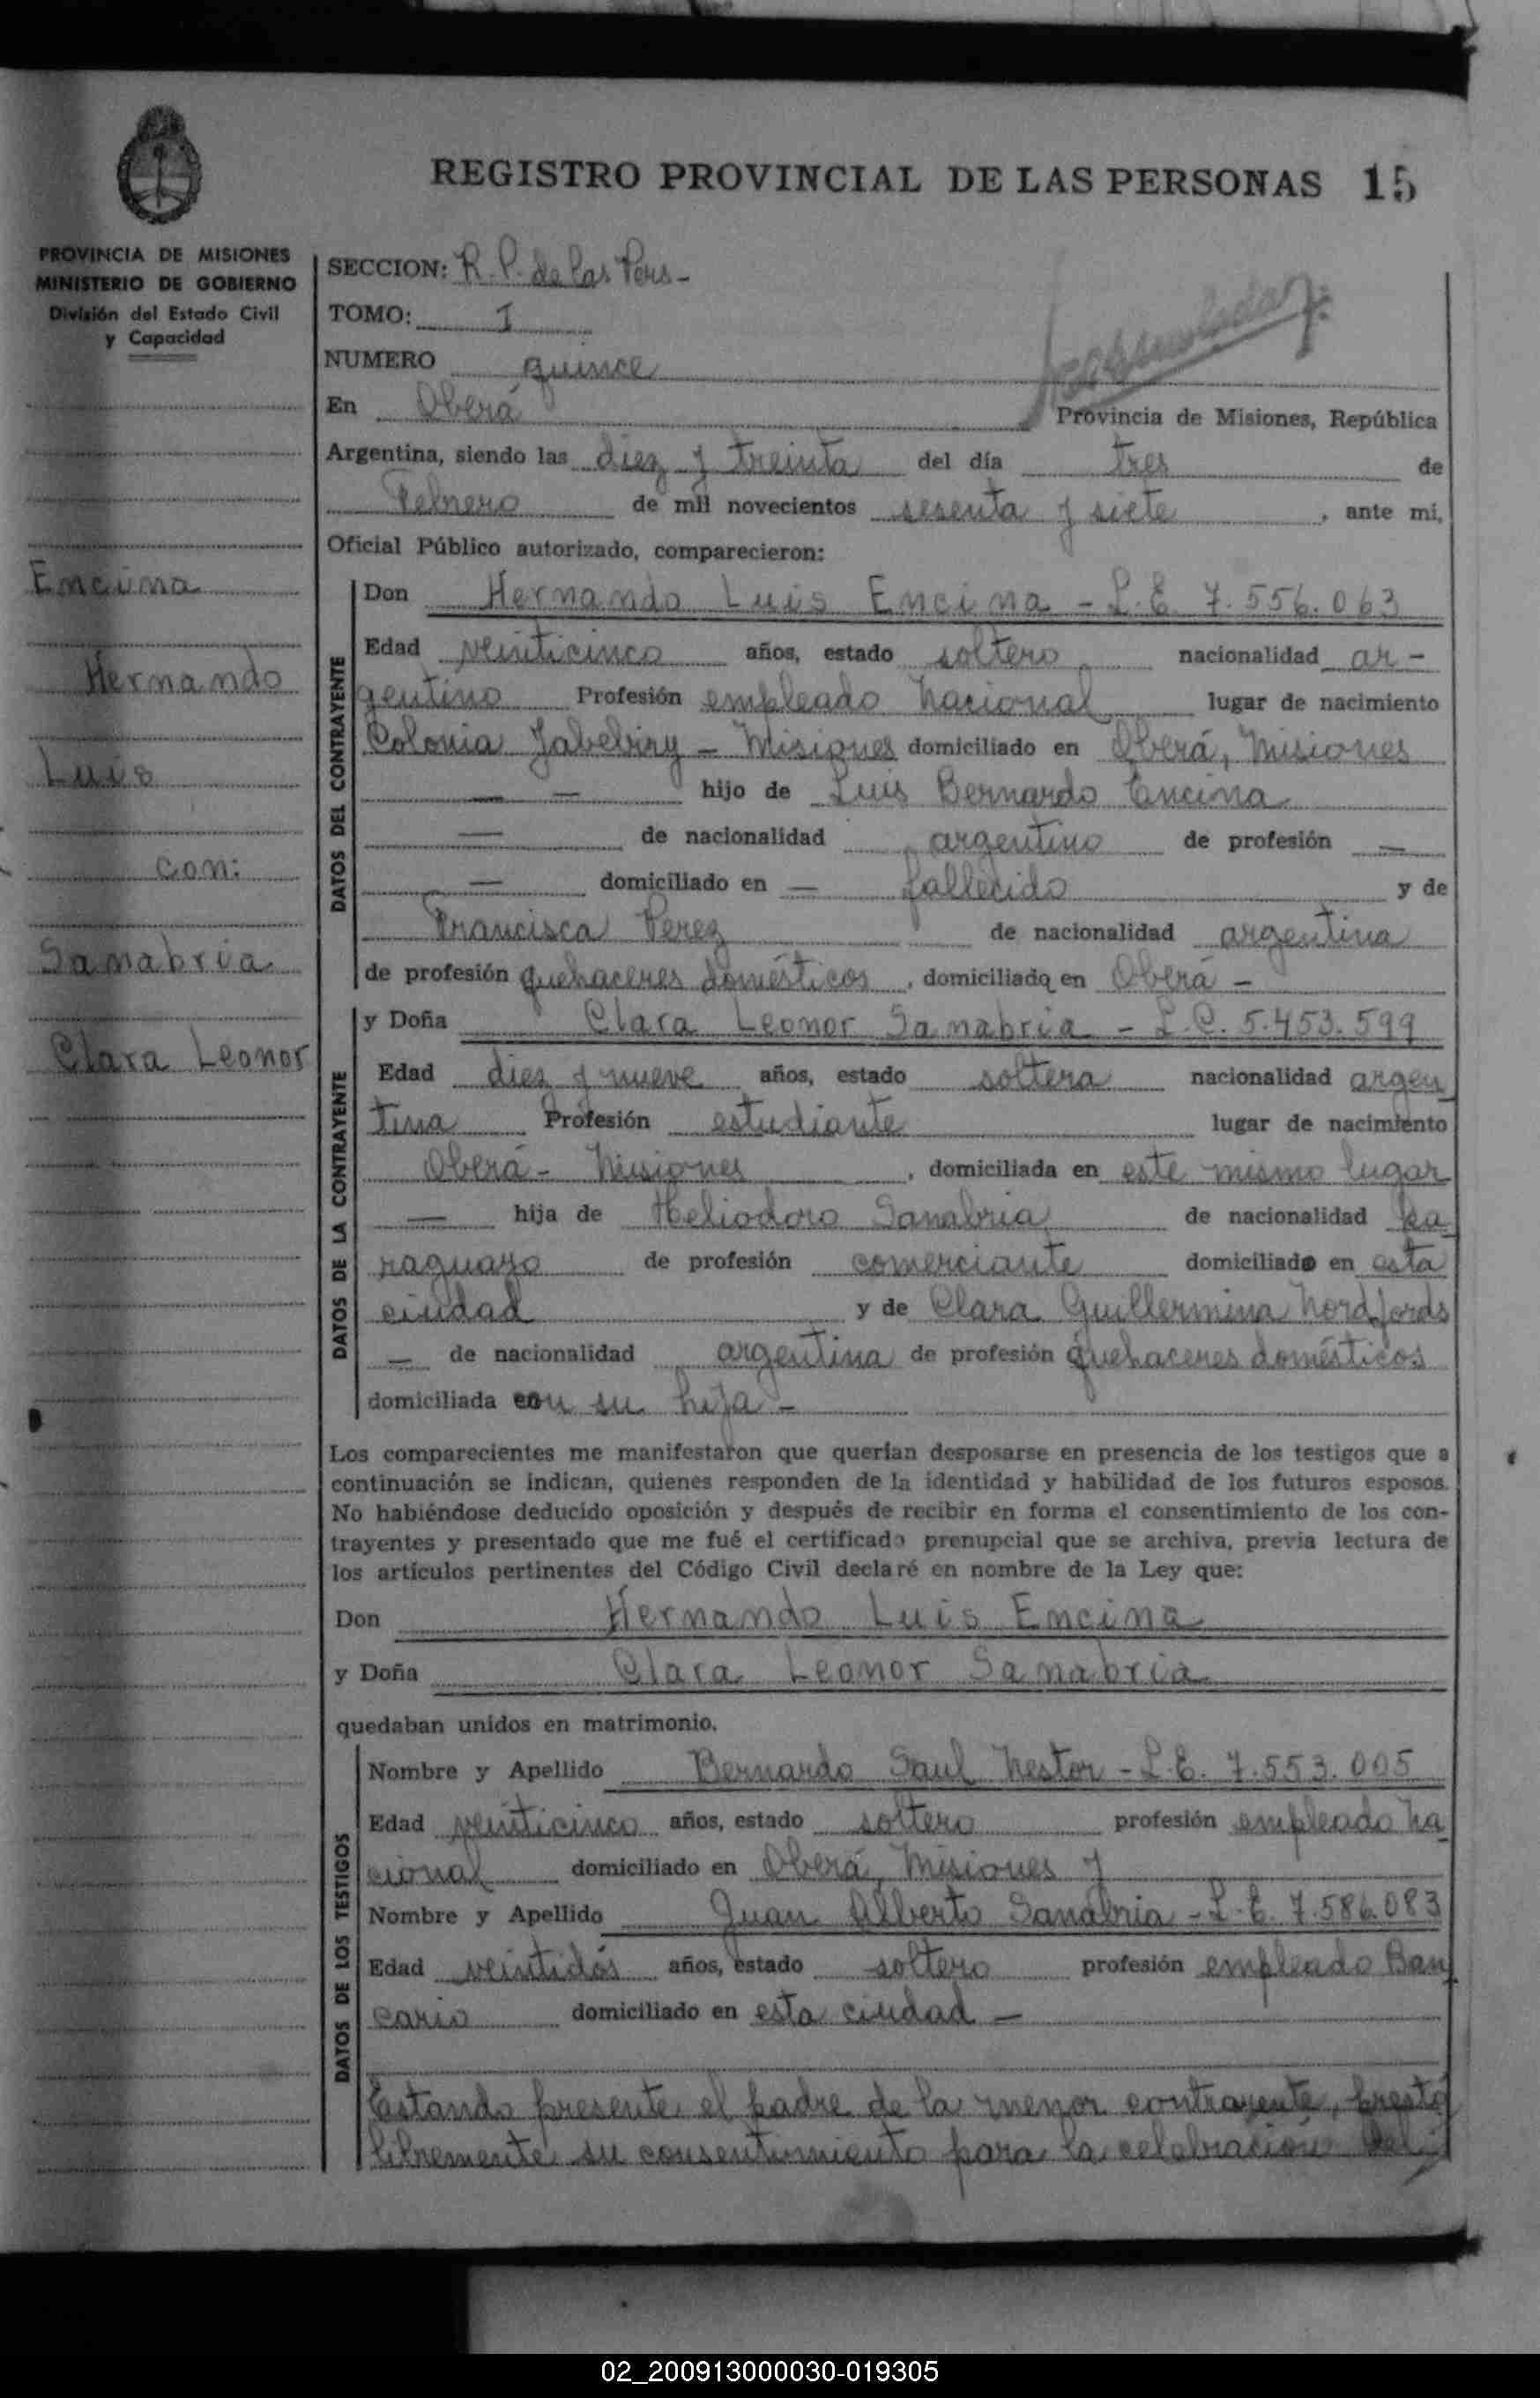 REGISTRO PROVINCIAL DE LAS PERSONAS 15
PROVINCIA DE MISIONES
MINISTERIO DE GOBIERNO
División del Estado Civil
y Capacidad
Encina
Hernando
Luis
con:
Sanabria
Clara Leonor
SECCION: R. P. de las Pers-
TOMO: I
NUMERO quince
En Oberá Provincia de Misiones, República
Argentina, siendo las diez y treinta del día tres de
Febrero de mil novecientos sesenta y siete, ante mí,
Oficial Público autorizado, comparecieron:
DATOS DEL CONTRAYENTE
Don Hernando Luis Encina - L.E. 7.556.063
Edad veinticinco años, estado soltero nacionalidad ar-
gentino Profesión empleado Nacional lugar de nacimiento
Colonia Yabebiry - Misiones domiciliado en Oberá, Misiones
— — hijo de Luis Bernardo Encina
— de nacionalidad argentino de profesión —
— domiciliado en — fallecido y de
Francisca Perez de nacionalidad argentina
de profesión quehaceres domésticos, domiciliada en Oberá -
DATOS DE LA CONTRAYENTE
y Doña Clara Leonor Sanabria - L.C. 5.453.599
Edad diez y nueve años, estado soltera nacionalidad argen
tina Profesión estudiante lugar de nacimiento
Oberá - Misiones, domiciliada en este mismo lugar
— hija de Heliodoro Sanabria de nacionalidad pa
raguayo de profesión comerciante domiciliado en esta
ciudad y de Clara Guillermina Nordfords
— de nacionalidad argentina de profesión quehaceres domésticos
domiciliada con su hija -
Los comparecientes me manifestaron que querían desposarse en presencia de los testigos que a
continuación se indican, quienes responden de la identidad y habilidad de los futuros esposos.
No habiéndose deducido oposición y después de recibir en forma el consentimiento de los con-
trayentes y presentado que me fué el certificado prenupcial que se archiva, previa lectura de
los artículos pertinentes del Código Civil declaré en nombre de la Ley que:
Don Hernando Luis Encina
y Doña Clara Leonor Sanabria
quedaban unidos en matrimonio.
DATOS DE LOS TESTIGOS
Nombre y Apellido Bernardo Saul Nestor - L.E. 7.553.005
Edad veinticinco años, estado soltero profesión empleado Na
cional domiciliado en Oberá, Misiones y
Nombre y Apellido Juan Alberto Sanabria - L.E. 7.586.083
Edad veintidós años, estado soltero profesión empleado Ban
cario domiciliado en esta ciudad —
Estando presente el padre de la menor contrayente, prestó
libremente su consentimiento para la celebración del
02_200913000030-019305